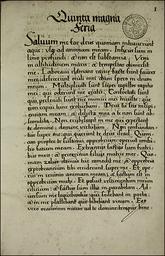 Quinta magna
Feria
Saluum me fac deus quoniam intrauerunt
aque usq; ad animam meam. Infixus sum in
limo profundi: et non est substantia. Veni
in altitudinem maris: et tempestas demersit
me. Laboraui clamans rauce facte sunt fauces
mee: defecerunt oculi mei dum spero in deum
meum. Multiplicati sunt super capillos capitis
mei: qui oderunt me gratis. Confortati sunt
qui persecuti sunt me inimici mei iniuste: que
non rapui tunc exoluebam. Deus tu scis insipi-
entiam meam: et delicta mea a te non sunt abs-
condita. Non erubescant in me qui expectant
te domine: domine uirtutum. Non confundan-
tur super me: qui querunt te deus israel. Quoni-
am propter te sustinui opprobrium: operuit confusio
faciem meam. Extraneus factus sum fratri-
bus meis: et peregrinus filijs matris mee. Quo-
niam zelus domus tue comedit me: et opprobria
exprobrantium tibi ceciderunt super me. Et ope-
rui in ieiunio animam meam: et factum est in
opprobrium mihi. Et posui uestimentum meum
cilicium: et factus sum illis in parabolam. Ad-
uersum me loquebantur qui sedebant in porta:
et in me psallebant qui bibebant uinum. Ego
uero orationem meam ad te domine: tempus bene-